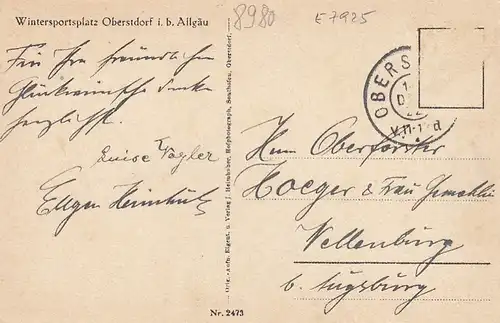 Wintersportsplatz Oberstdorf i. b. Allgäu
8980
E 7925
Für Ihre freundlichen
Glückwünsche danke
herzlichst.
Luise Vogler
Orig.-Aufn. Eigent. u. Verlag J. Heimhuber, Hofphotograph, Sonthofen, Oberstdorf.
Nr. 2473
OBERS
Herrn Oberförster
Hoeger & Frau Gemahlin
Wellenburg
b. Augsburg